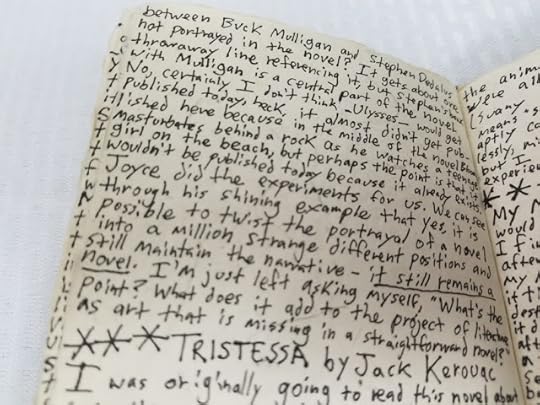 between Buck Mulligan and Stephen Dedalus
not portrayed in the novel? It gets about one
throwaway line referencing it, but Stephen's
with Mulligan is a central part of the novel
No, certainly I don't think _Ulysses_ would get
published today, heck, it almost didn't get pub-
lished here because in the middle of the novel Bloom
masturbates behind a rock as he watches a teenage
girl on the beach, but perhaps the point is that it
wouldn't be published today because it already exists
Joyce did the experiments for us. We can see
through his shining example that yes, it is
possible to twist the portrayal of a novel
into a million strange different positions and
still maintain the narrative - it still remains a
novel. I'm just left asking myself, "What's the
point? What does it add to the project of literature
as art that is missing in a straightforward novel?"
*** TRISTESSA by Jack Kerouac
I was originally going to read this novel about
the
were
means
aptly
but I
* *
My
would